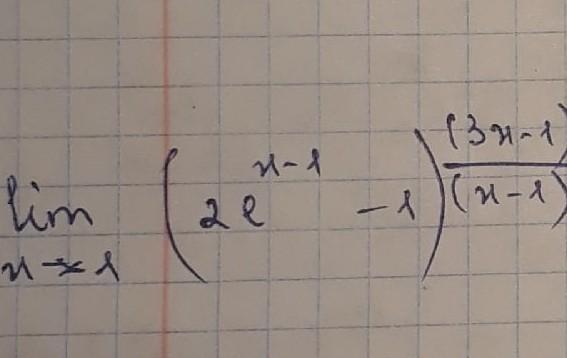 lim x→1 (2e^(x-1) - 1)^((3x-1)/(x-1))